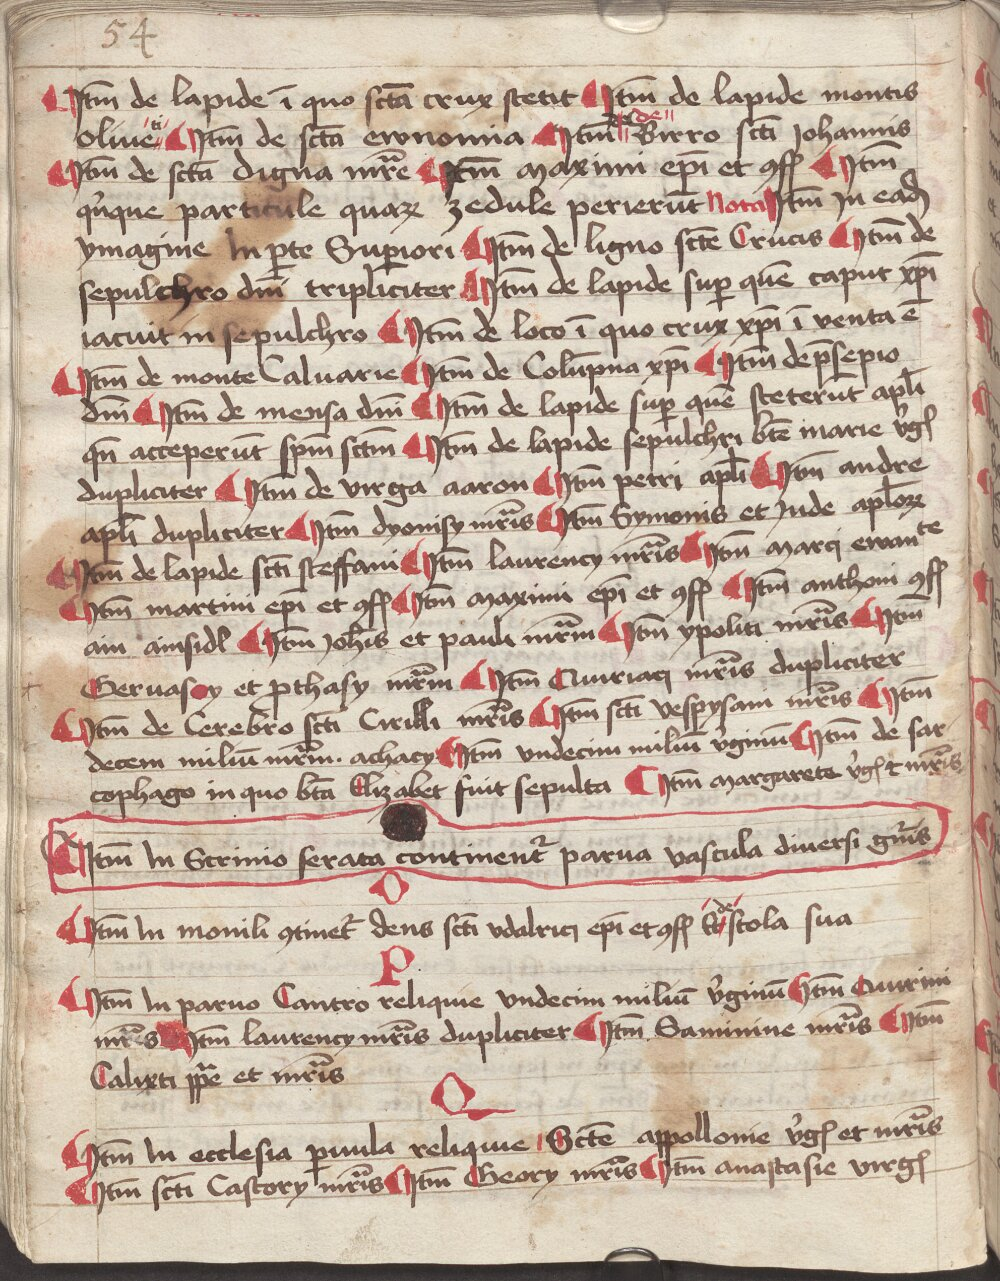 54
Itm̄ de lapide ī quo sctā crux stetit Itm̄ de lapide montis
oliueti Itm̄ de sctā ewnomia Itm̄ de Birro sctī Johannis
Itm̄ de sctā digna mr̄e Itm̄ Maximi ep̄i et ꝯff Itm̄
qn̄que particule quaꝝ zedule perierūt Nota Itm̄ In ead̄
ymagine In ꝑte Supiori Itm̄ de ligno sctē Crucis Itm̄ de
sepulchro dm̄ tripliciter Itm̄ de lapide sup̄ quē caput xp̄i
iacuit in sepulchro Itm̄ de loco ī quo crux xp̄i ī venta ē
Itm̄ de monte Caluarie Itm̄ de Colūpna xp̄i Itm̄ de p̄sepio
dm̄ Itm̄ de mensa dm̄ Itm̄ de lapide sup̄ quē steterūt apl̄i
qn̄ acceperūt sp̄m sctm̄ Itm̄ de lapide sepulchri btē marie v̄ḡ
dupliciter Itm̄ de virga aaron Itm̄ petri apl̄i Itm̄ andre
apl̄i dupliciter Itm̄ dyonisy mr̄is Itm̄ Symonis et Jude apl̄oꝝ
Itm̄ de lapide sctī steffani Itm̄ laurency mr̄is Itm̄ marci ewante
Itm̄ martini ep̄i et ꝯff Itm̄ Maximi ep̄i et ꝯff Itm̄ anthoni ꝯff
ain ainsidl Itm̄ Joh̄is et pauli mr̄m Itm̄ ypoliti mr̄is Itm̄
Geruasy et ꝓthasy mr̄m Itm̄ Quiriaci mr̄is dupliciter
Itm̄ de Cerebro sctī Cirilli mr̄is Itm̄ sctī vesppsani mr̄is Itm̄
decem miliū mr̄m achacy Itm̄ vndecim miliū v̄ginū Itm̄ de sar
cophago in quo btā Elizabet fuit sepulta Itm̄ Margarete v̄ḡ et mr̄is
Itm̄ In Scrinio serata continent᷑ parua vascula diuersi gn̄is
O
Itm̄ In monili ꝯtinet᷑ dens sctī vdalrici ep̄i et ꝯff de stola sua
P
Itm̄ In paruo Cantro reliquie vndecim miliū v̄ginū Itm̄ Quirini
mr̄is Itm̄ laurency mr̄is dupliciter Itm̄ Saminine mr̄is Itm̄
Calixti pp̄e et mr̄is
Q
Itm̄ In ecclesia ꝑuula reliquie Sctē appollonie v̄ḡ et mr̄is
Itm̄ sctī Castory mr̄is Itm̄ Geory mr̄is Itm̄ anastasie virḡ